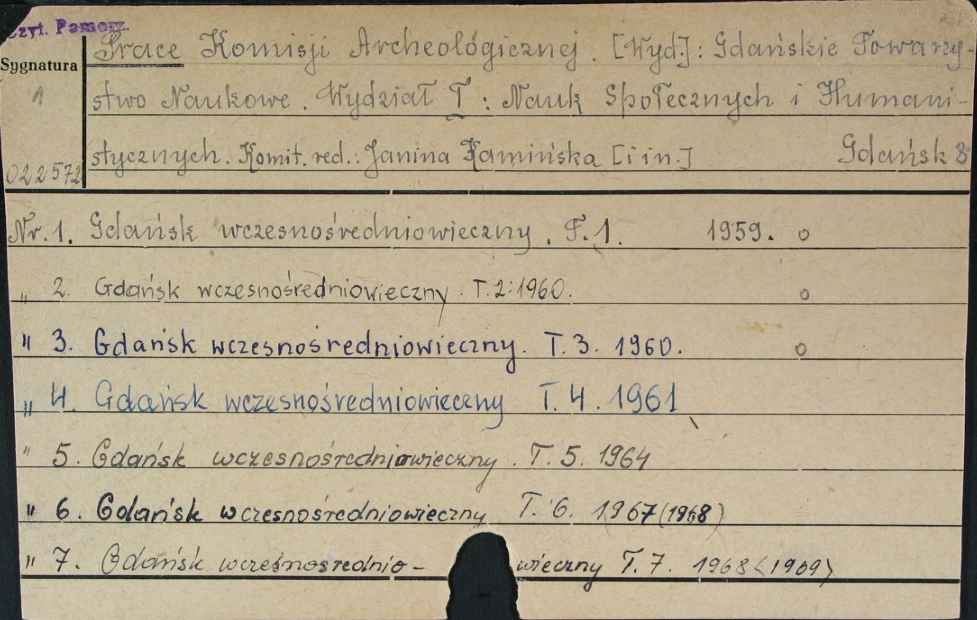 Czyt. Pomorz.
Sygnatura
1
022572
Prace Komisji Archeológicznej. [Wyd.]: Gdańskie Towarzy-
stwo Naukowe. Wydział I: Nauk Społecznych i Humani-
stycznych. Komit. red.: Janina Kamińska [i in.] Gdańsk 8°
Nr. 1. Gdańsk wczesnośredniowieczny. T. 1. 1959. o
„ 2. Gdańsk wczesnośredniowieczny. T. 2: 1960. o
" 3. Gdańsk wczesnośredniowieczny. T. 3. 1960. o
„ 4. Gdańsk wczesnośredniowieczny T. 4. 1961
" 5. Gdańsk wczesnośredniowieczny. T. 5. 1964
" 6. Gdańsk wczesnośredniowieczny T. 6. 1967 (1968)
" 7. Gdańsk wcześnosrednio-wieczny T. 7. 1968 <1969>